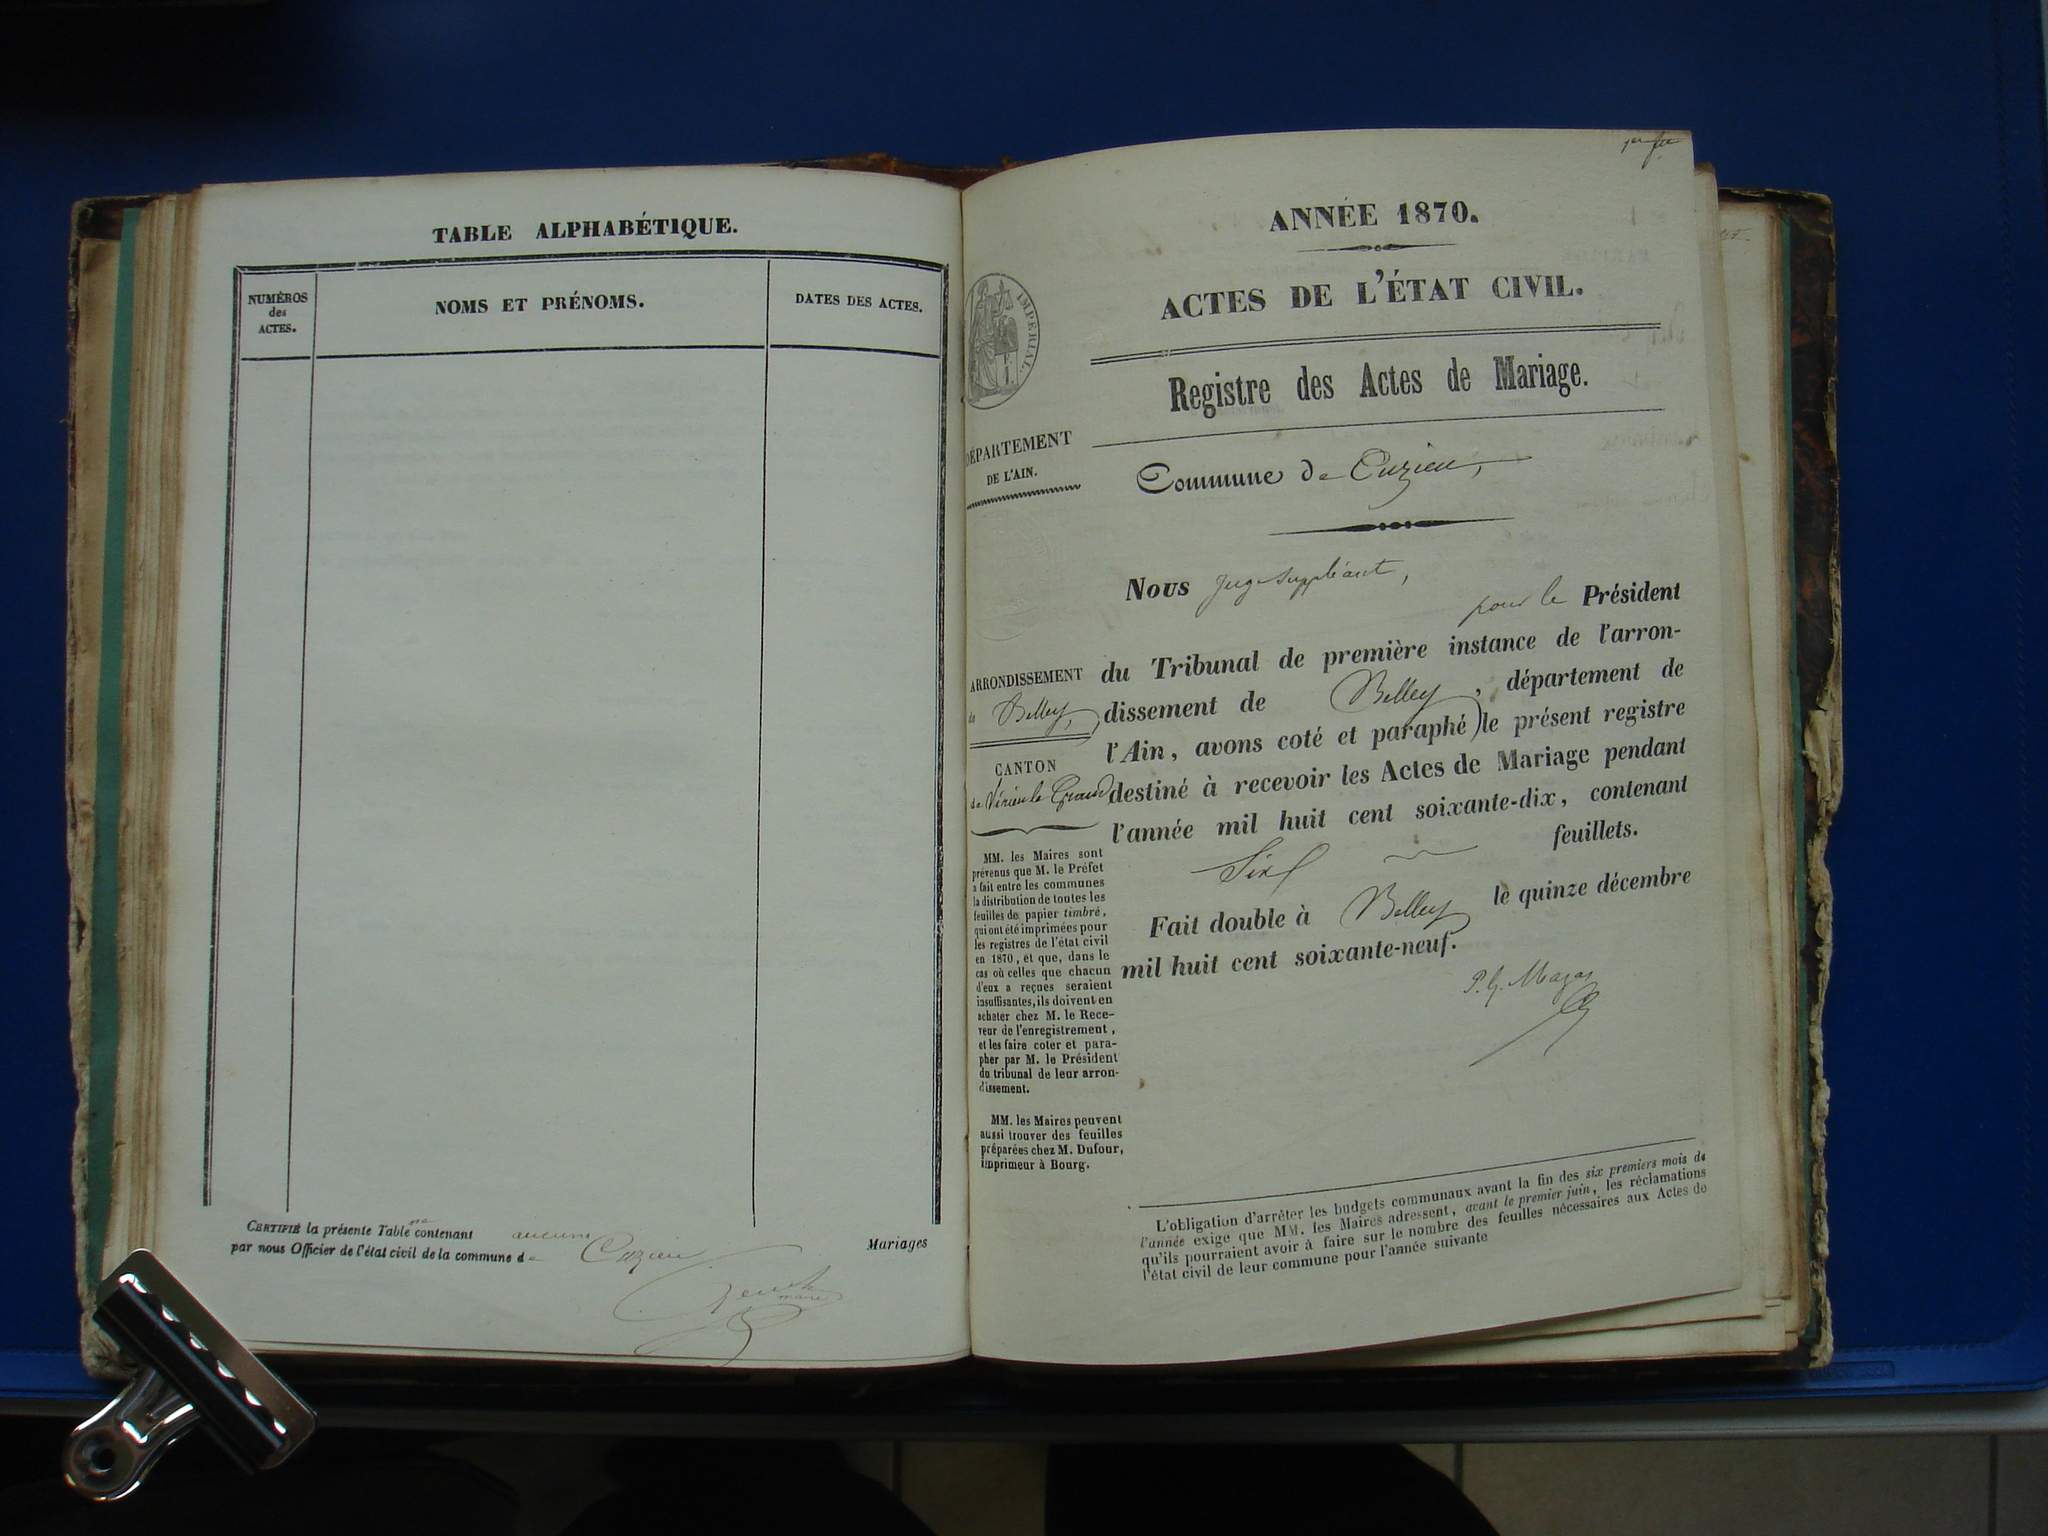 TABLE ALPHABÉTIQUE.
NUMÉROS
des
ACTES.
NOMS ET PRÉNOMS.
DATES DES ACTES.
CERTIFIÉ la présente Table ne contenant aucuns Mariages
par nous Officier de l'état civil de la commune de Cuzieu
maire
1er
ANNÉE 1870.
ACTES DE L'ÉTAT CIVIL.
IMPÉRIAL.
Registre des Actes de Mariage.
DÉPARTEMENT
DE L'AIN.
Commune de Cuzieu,
Nous Juge suppléant,
pour le Président
du Tribunal de première instance de l'arron-
dissement de Belley, département de
l'Ain, avons coté et paraphé le présent registre
destiné à recevoir les Actes de Mariage pendant
l'année mil huit cent soixante-dix, contenant
Six feuillets.
Fait double à Belley le quinze décembre
mil huit cent soixante-neuf.
P. G. Mazas
ARRONDISSEMENT
de Belley,
CANTON
de Virieu le Grand
MM. les Maires sont
prévenus que M. le Préfet
a fait entre les communes
la distribution de toutes les
feuilles de papier timbré,
qui ont été imprimées pour
les registres de l'état civil
en 1870, et que, dans le
cas où celles que chacun
d'eux a reçues seraient
insuffisantes, ils doivent en
acheter chez M. le Rece-
veur de l'enregistrement,
et les faire coter et para-
pher par M. le Président
du tribunal de leur arron-
dissement.
MM. les Maires peuvent
aussi trouver des feuilles
préparées chez M. Dufour,
imprimeur à Bourg.
L'obligation d'arrêter les budgets communaux avant la fin des six premiers mois de
l'année exige que MM. les Maires adressent, avant le premier juin, les réclamations
qu'ils pourraient avoir à faire sur le nombre des feuilles nécessaires aux Actes de
l'état civil de leur commune pour l'année suivante